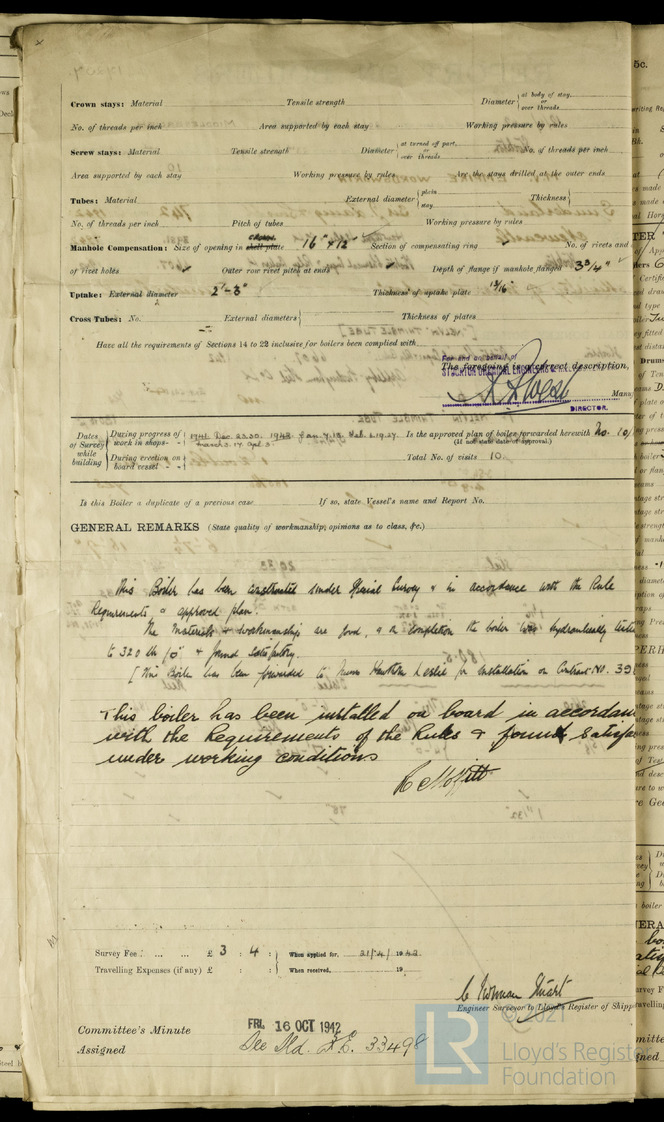 Crown stays: Material Tensile strength Diameter { at body of stay, or over threads
No. of threads per inch Area supported by each stay Working pressure by rules
Screw stays: Material Tensile strength Diameter { at turned off part, or over threads No. of threads per inch
Area supported by each stay Working pressure by rules Are the stays drilled at the outer ends
Tubes: Material External diameter { plain stay Thickness {
No. of threads per inch Pitch of tubes Working pressure by rules
Manhole Compensation: Size of opening in shell plate 16" × 12" Section of compensating ring No. of rivets and
of rivet holes Outer row rivet pitch at ends Depth of flange if manhole flanged 3 3/4"
Uptake: External diameter 2'-3" Thickness of uptake plate 13/16"
Cross Tubes: No. External diameters { Thickness of plates
Have all the requirements of Sections 14 to 22 inclusive for boilers been complied with
For and on behalf of
The foregoing is a correct description,
STOCKTON CHEMICAL ENGINEERS &
Manu
DIRECTOR.
Dates of Survey while building { During progress of work in shops - - 1941. Dec. 23.30. 1942. Jan. 7.13. Feb. 6.19.27. March 3.17. Apl. 3. Is the approved plan of boiler forwarded herewith No. 10/
(If not state date of approval.)
During erection on board vessel - - Total No. of visits 10
Is this Boiler a duplicate of a previous case If so, state Vessel's name and Report No.
GENERAL REMARKS (State quality of workmanship, opinions as to class, &c.)
This Boiler has been constructed under Special Survey & in accordance with the Rule
Requirements & approved plan.
The materials & workmanship are good, & on completion the boiler was hydraulically teste
to 320 lb/□" & found satisfactory.
[This Boiler has been forwarded to Messrs Hawthorn Leslie for installation on Contract No. 39
This boiler has been installed on board in accordan
with the Requirements of the Rules & found satisfa
under working conditions
R Moffitt
Survey Fee ... ... £ 3 : 4 : When applied for, 21/4/ 1942
Travelling Expenses (if any) £ : : When received, 19
C Norman Stuart
Engineer Surveyor to Lloyd's Register of Shipp
Committee's Minute FRI. 16 OCT 1942
Assigned See Sld. F.E. 33498
© 2021
LR
Lloyd's Register
Foundation